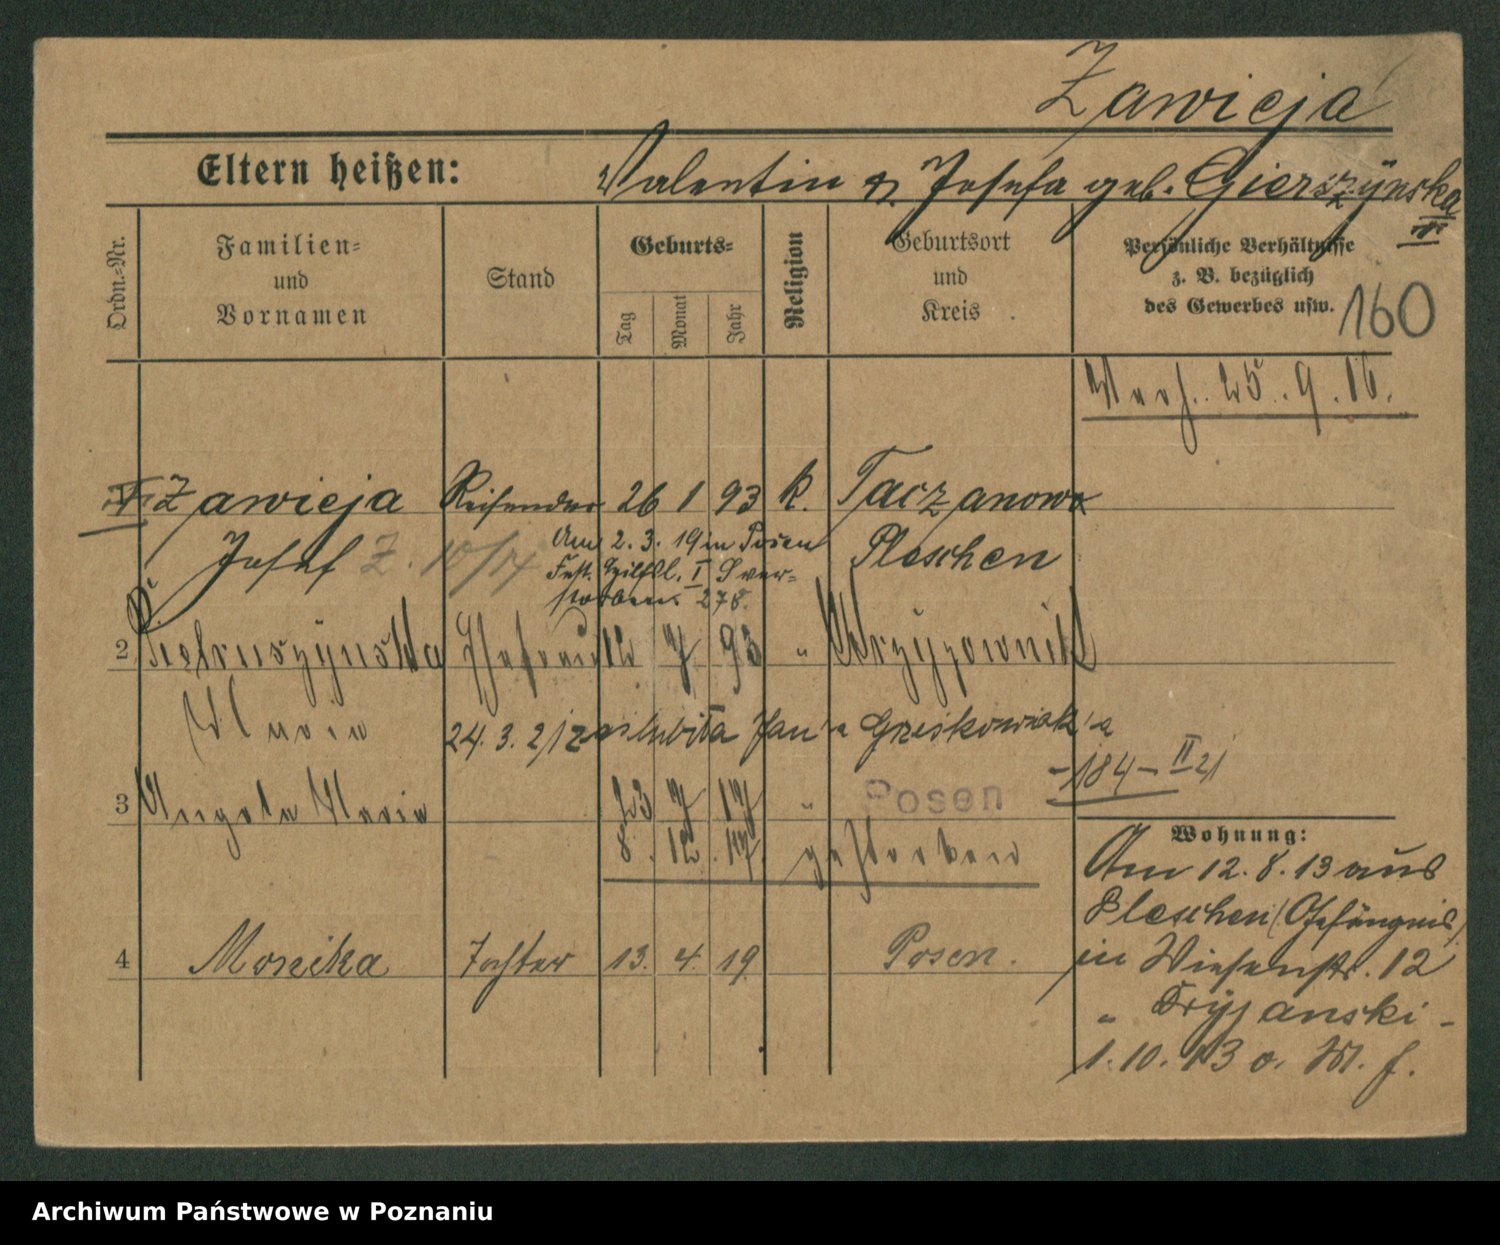 Zawieja
Eltern heißen: Valentin u. Josefa geb. Gierszÿnska
Ordn.=Nr.
Familien=
und
Vornamen
Stand
Geburts=
Tag
Monat
Jahr
Religion
Geburtsort
und
Kreis
Persönliche Verhältnisse
z. B. bezüglich
des Gewerbes usw.
160
Verh. 25. 9. 16.
Zawieja Reisender 26 1 93 k. Taczanowo
Josef Z. 10/14 Pleschen
Am 2. 3. 19 in Posen
Fest. Hilfsl. I ver=
storben 278.
2 Pietruszÿnska Ehefrau 12 7 93 "
Maria
24. 3. 21 zaslubiła Jan'a Grześkowiak'a
-184- II 21
3 Angela Maria 23 7 17 " Posen
8. 12. 17. gestorben
4 Monika Tochter 13. 4. 19 Posen.
Wohnung:
Am 12. 8. 13 aus
Pleschen (Gefängnis)
in Wiesenstr. 12
"
1. 10. 13 o. M. f.
Archiwum Państwowe w Poznaniu